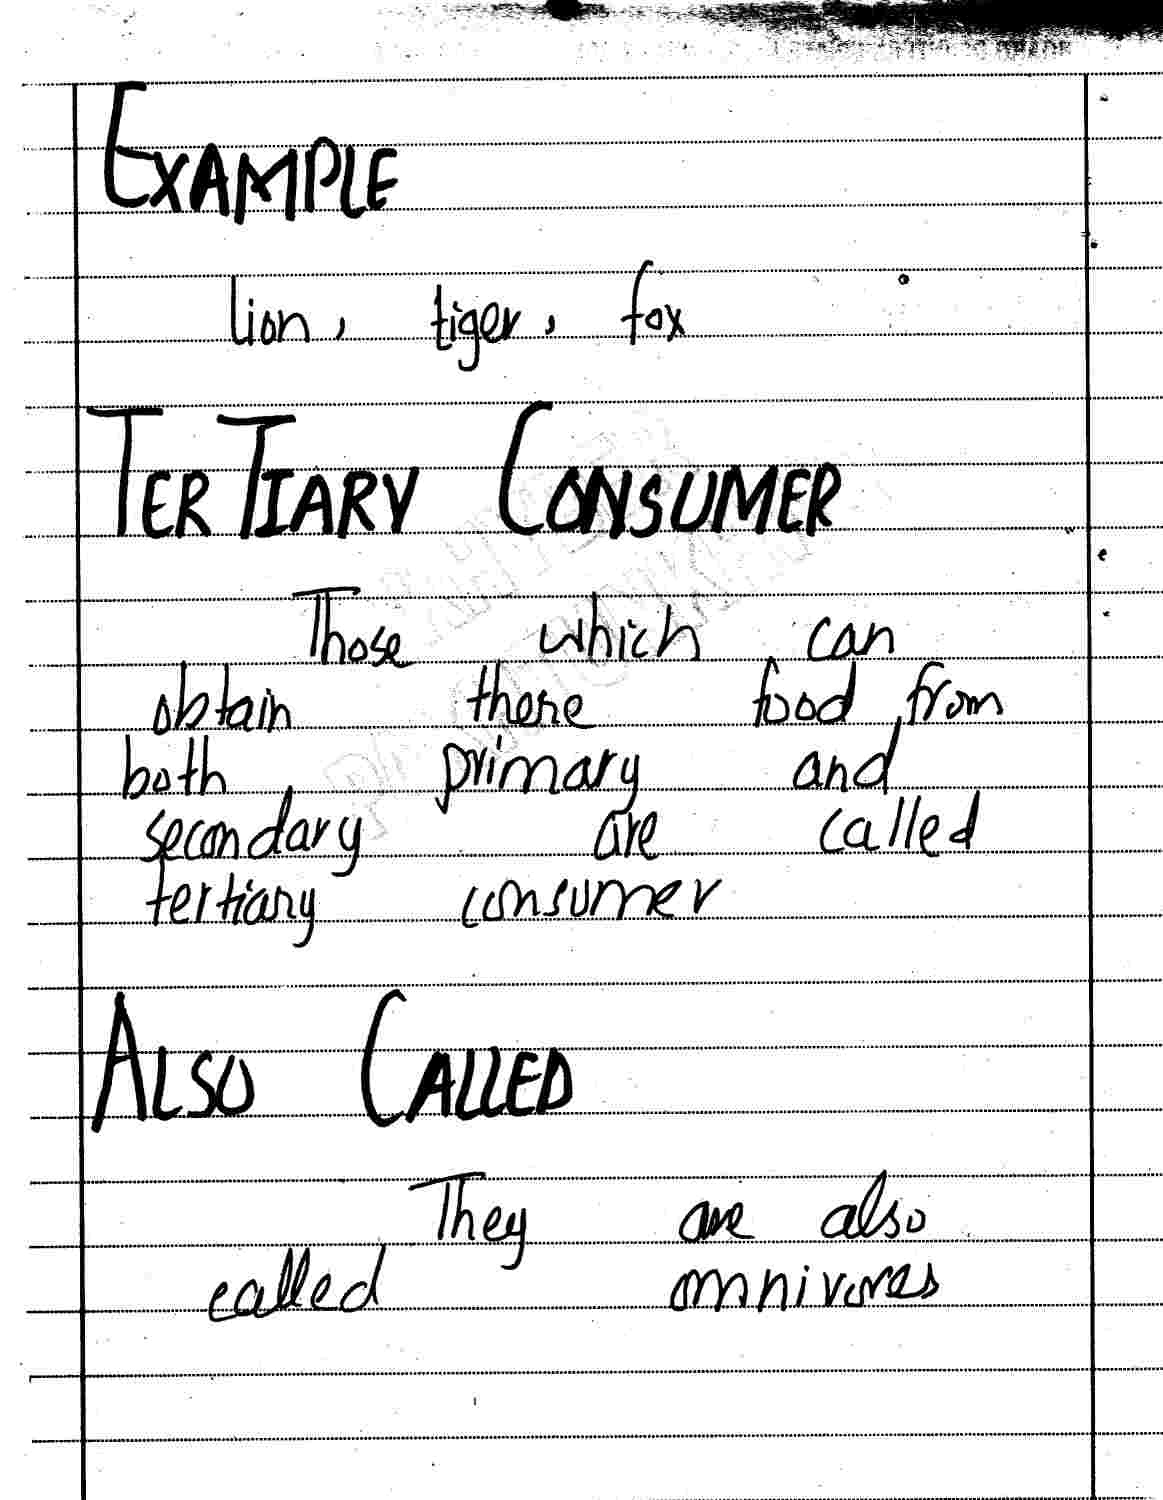 EXAMPLE
lion, tiger, fox
TERTIARY CONSUMER
Those which can
obtain there food from
both primary and
secondary are called
tertiary consumer
ALSO CALLED
They are also
called omnivores